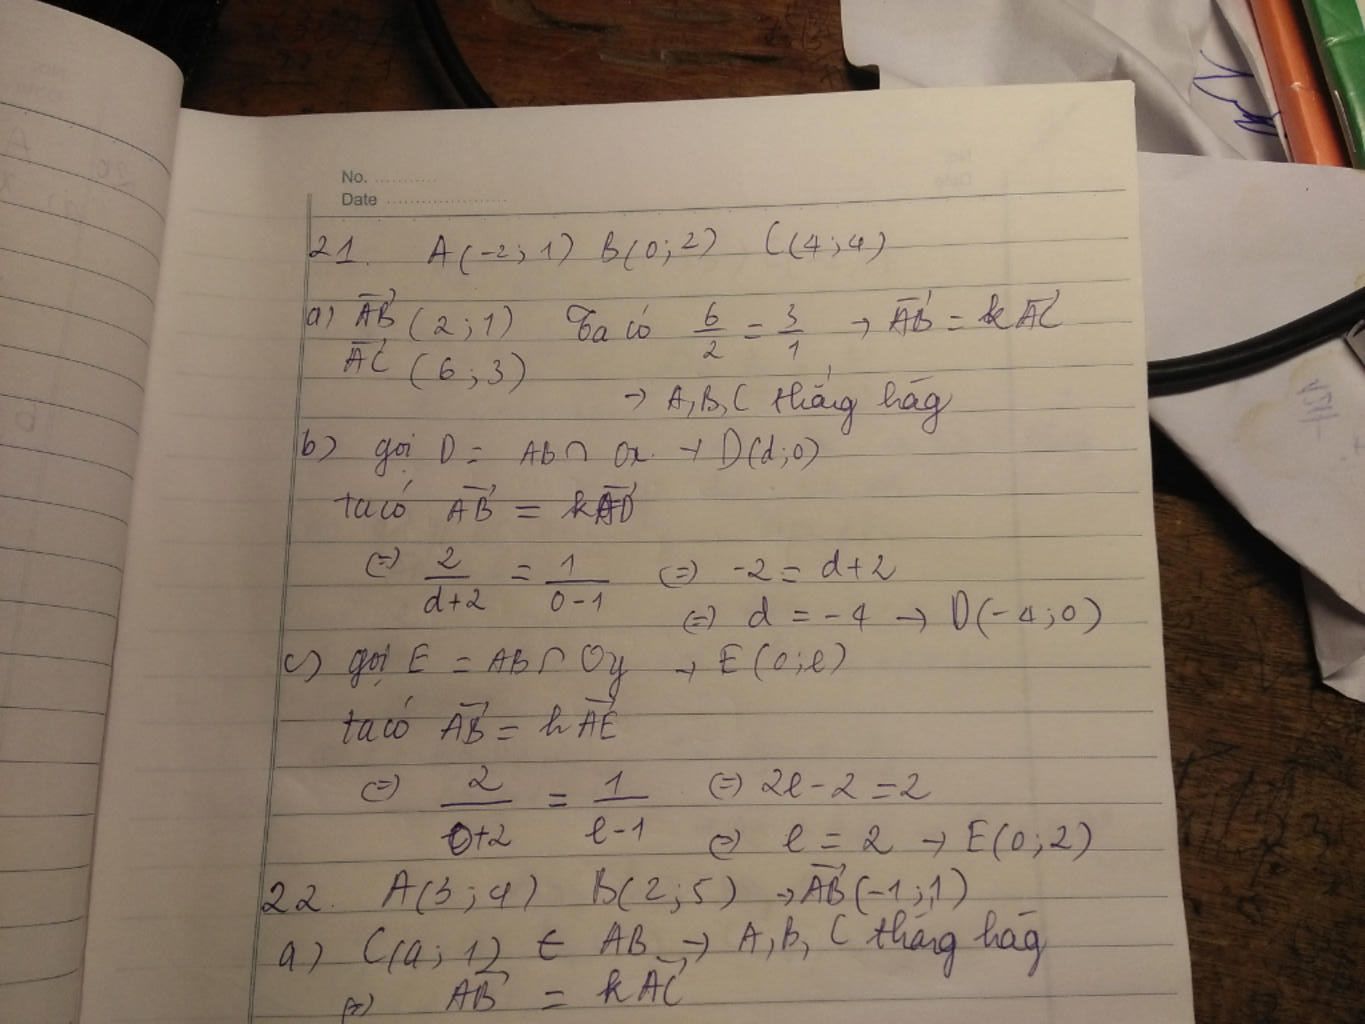 No. ...........
Date .....................
21. A(-2; 1) B(0; 2) C(4; 4)
a) AB (2; 1) Ta có 6/2 = 3/1 → AB = k AC
AC (6; 3)
→ A, B, C thẳng hàg
b) gọi D = AB ∩ Ox → D(d; 0)
ta có AB = k AD
(=) 2/(d+2) = 1/(0-1) (=) -2 = d+2
(=) d = -4 → D(-4; 0)
c) gọi E = AB ∩ Oy → E(0; e)
ta có AB = k AE
(=) 2/(0+2) = 1/(e-1) (=) 2e - 2 = 2
(=) e = 2 → E(0; 2)
22. A(3; 4) B(2; 5) → AB (-1; 1)
a) C(a; 1) ∈ AB → A, B, C thẳng hàg
(=) AB = k AC